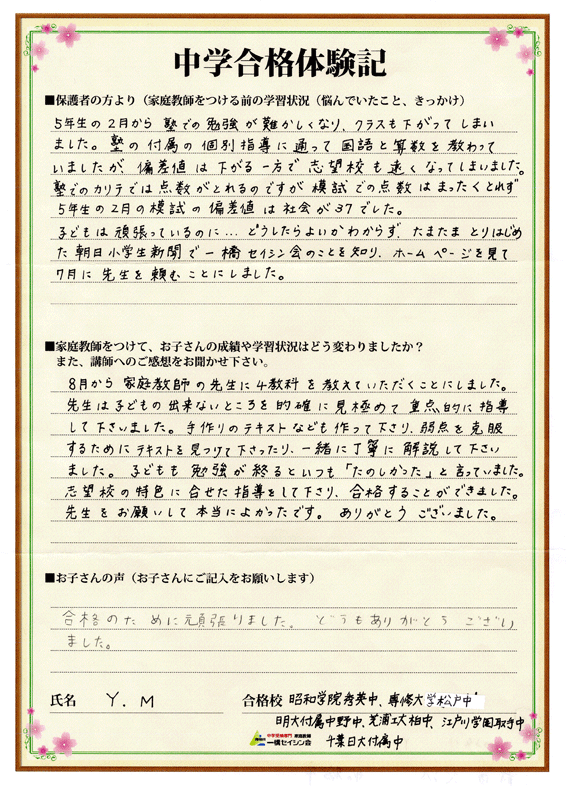 中学合格体験記
■保護者の方より（家庭教師をつける前の学習状況（悩んでいたこと、きっかけ）
5年生の2月から塾での勉強が難かしくなり、クラスも下がってしまい
ました。塾の付属の個別指導に通って国語と算数を教わって
いましたが、偏差値は下がる一方で志望校も遠くなってしまいました。
塾でのカリテでは点数がとれるのですが模試での点数はまったくとれず
5年生の2月の模試の偏差値は社会が37でした。
子どもは頑張っているのに…どうしたらよいかわからず、たまたまとりはじめ
た朝日小学生新聞で一橋セイシン会のことを知り、ホームページを見て
7月に先生を頼むことにしました。
■家庭教師をつけて、お子さんの成績や学習状況はどう変わりましたか？
また、講師へのご感想をお聞かせ下さい。
8月から家庭教師の先生に4教科を教えていただくことにしました。
先生は子どもの出来ないところを的確に見極めて重点的に指導
して下さいました。手作りのテキストなども作って下さり、弱点を克服
するためにテキストを見つけて下さったり、一緒に丁寧に解説して下さい
ました。子どもも勉強が終るといつも「たのしかった」と言っていました。
志望校の特色に合せた指導をして下さり、合格することができました。
先生をお願いして本当によかったです。ありがとうございました。
■お子さんの声（お子さんにご記入をお願いします）
合格のために頑張りました。どうもありがとうござい
ました。
氏名 Y.M 合格校 昭和学院秀英中、専修大学松戸中
明大付属中野中、芝浦工大柏中、江戸川学園取手中
千葉日大付属中
中学受験専門 家庭教師
一橋セイシン会